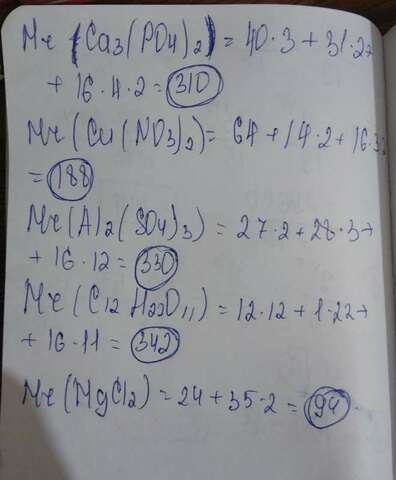 Mr (Ca3(PO4)2) = 40·3 + 31·2+
+ 16·4·2 = 310
Mr (Cu(NO3)2) = 64 + 14·2 + 16·3·2
= 188
Mr (Al2(SO4)3) = 27·2 + 28·3+
+ 16·12 = 330
Mr (C12H22O11) = 12·12 + 1·22+
+ 16·11 = 342
Mr (MgCl2) = 24 + 35·2 = 94